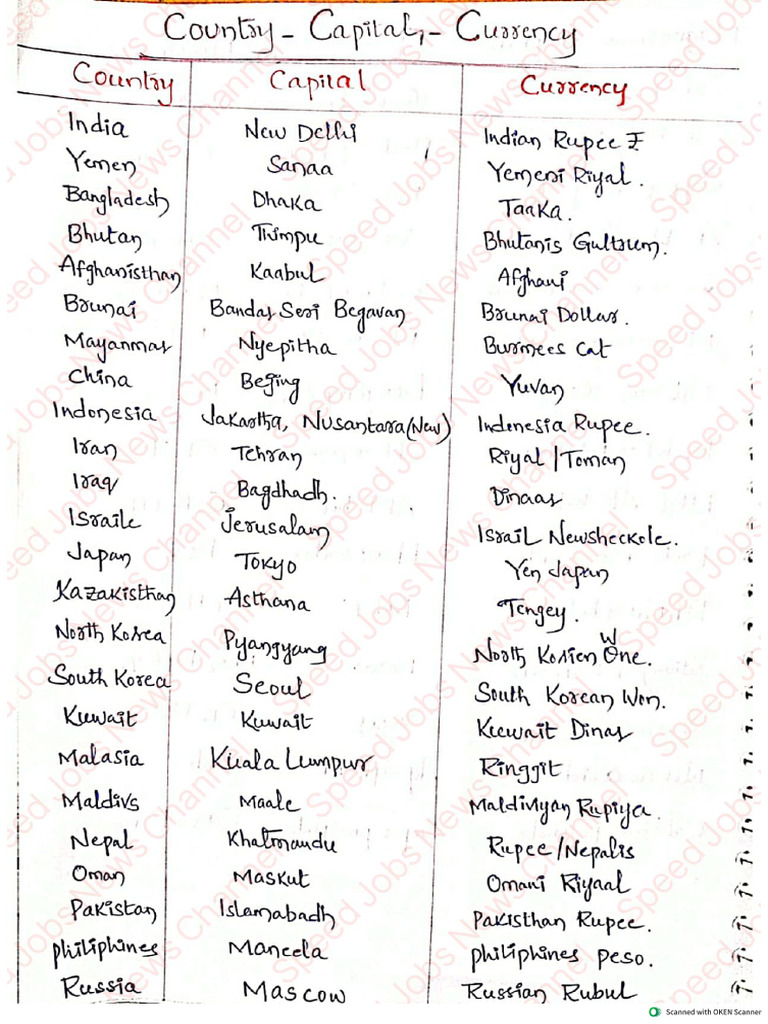 Country - Capital, - Currency
Country Capital Currency
India New Delhi Indian Rupee ₹
Yemen Sanaa Yemeni Riyal.
Bangladesh Dhaka Taaka.
Bhutan Thimpu Bhutanis Gultsum.
Afghanisthan Kaabul Afghani
Brunai Bandar Seri Begavan Brunai Dollar.
Mayanmar Nyepitha Burmees Cat
China Bejing Yuvan
Indonesia Jakartha, Nusantara(New) Indenesia Rupee.
Iran Tehran Riyal/Toman
Iraq Bagdhadh. Dinaar
Israile Jerusalam Israil Newsheckole.
Japan Tokyo Yen Japan
Kazakisthan Asthana Tengey.
North Korea Pyangyang North Korien One.
W
South Korea Seoul South Korean Won.
Kuwait Kuwait Kuwait Dinar
Malasia Kuala Lumpur Ringgit
Maldivs Maale Maldiviyan Rupiya.
Nepal Khatmandu Rupee/Nepalis
Oman Maskut Omani Riyaal
Pakistan Islamabadh Pakisthan Rupee.
Philiphines Maneela Philiphines Peso.
Russia Mascow Russian Rubul
Speed Jobs News Channel
Scanned with OKEN Scanner